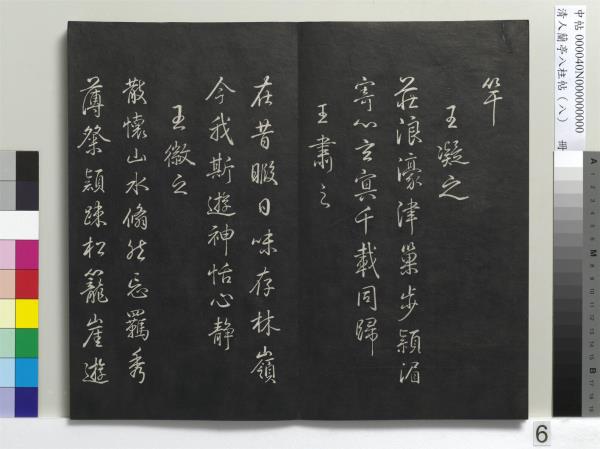 中帖 000040N000000000 冊
清人蘭亭八柱帖（八）
竿
王凝之
莊浪濠津巢步潁湄
寄心玄冥千載同歸
王肅之
在昔暇日味存林嶺
今我斯遊神怡心靜
王徽之
散懷山水翛然忘羈秀
薄粲穎疎松籠崖遊
6